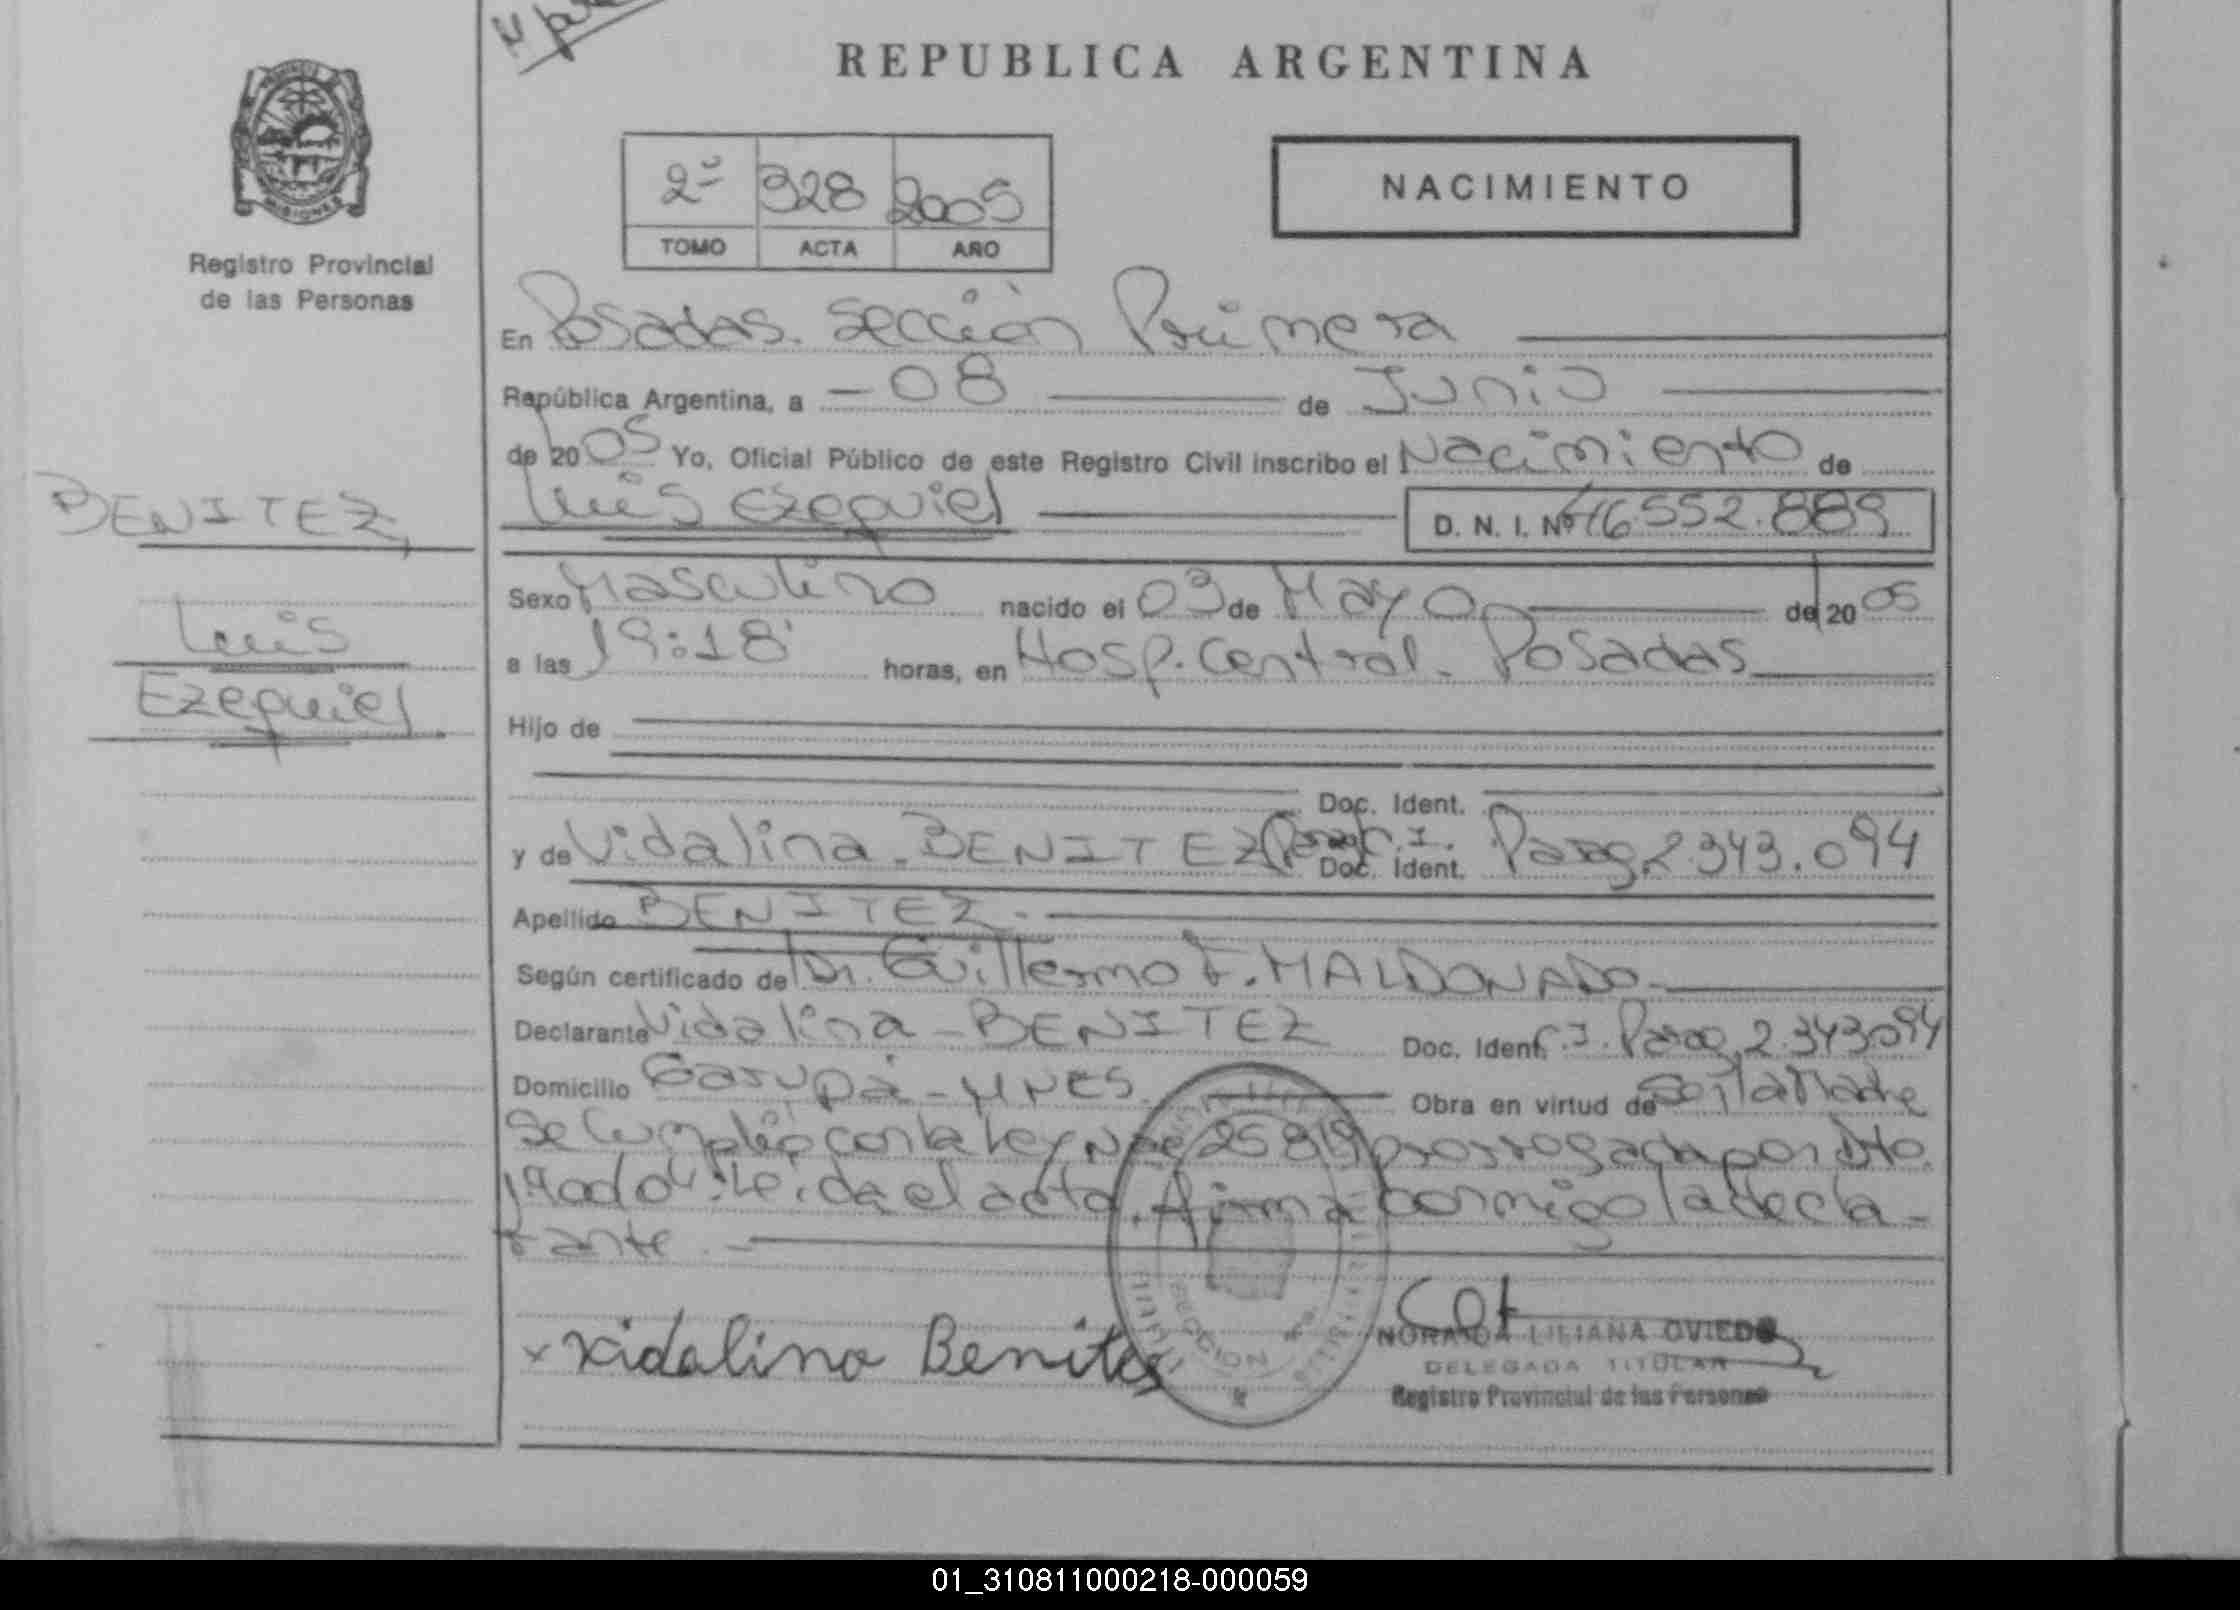 REPUBLICA ARGENTINA
PROVINCIA
MISIONES
Registro Provincial
de las Personas
2º 328 2005
TOMO ACTA AÑO
NACIMIENTO
En Posadas. Sección Primera
República Argentina, a - 08 de Junio
de 2005 Yo, Oficial Público de este Registro Civil inscribo el Nacimiento de
Luis Ezequiel D. N. I. Nº 46.552.889
BENITEZ,
Luis
Ezequiel
Sexo Masculino nacido el 03 de Mayo de 20 05
a las 19:18' horas, en Hosp. Central - Posadas
Hijo de
Doc. Ident.
y de Vidalina - BENITEZ C.I. Doc. Ident. Parag. 2.343.094
Apellido BENITEZ -
Según certificado de Dr. Guillermo F. MALDONADO
Declarante Vidalina - BENITEZ Doc. Ident. C.I. Parag. 2.343.094
Domicilio Garupá - MNES Obra en virtud de Ser la Madre
Se Cumplió con la Ley 25819 prorrogada por Dto.
Leida el acta, firma conmigo la decla-
rante. -
x Vidalina Benitez
SECCION
LILIANA OVIEDO
DELEGADA TITULAR
Registro Provincial de las Personas
01_310811000218-000059